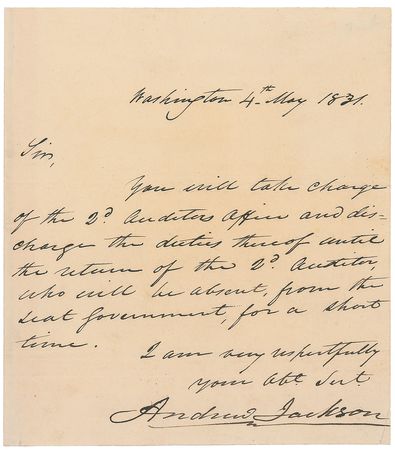 Washington 4th May 1831.
Sir,
You will take charge
of the 2d Auditors Office and dis-
charge the duties thereof until
the return of the 2d Auditor,
who will be absent, from the
seat Government, for a short
time.
I am very respectfully
your obt. Sert
Andrew Jackson